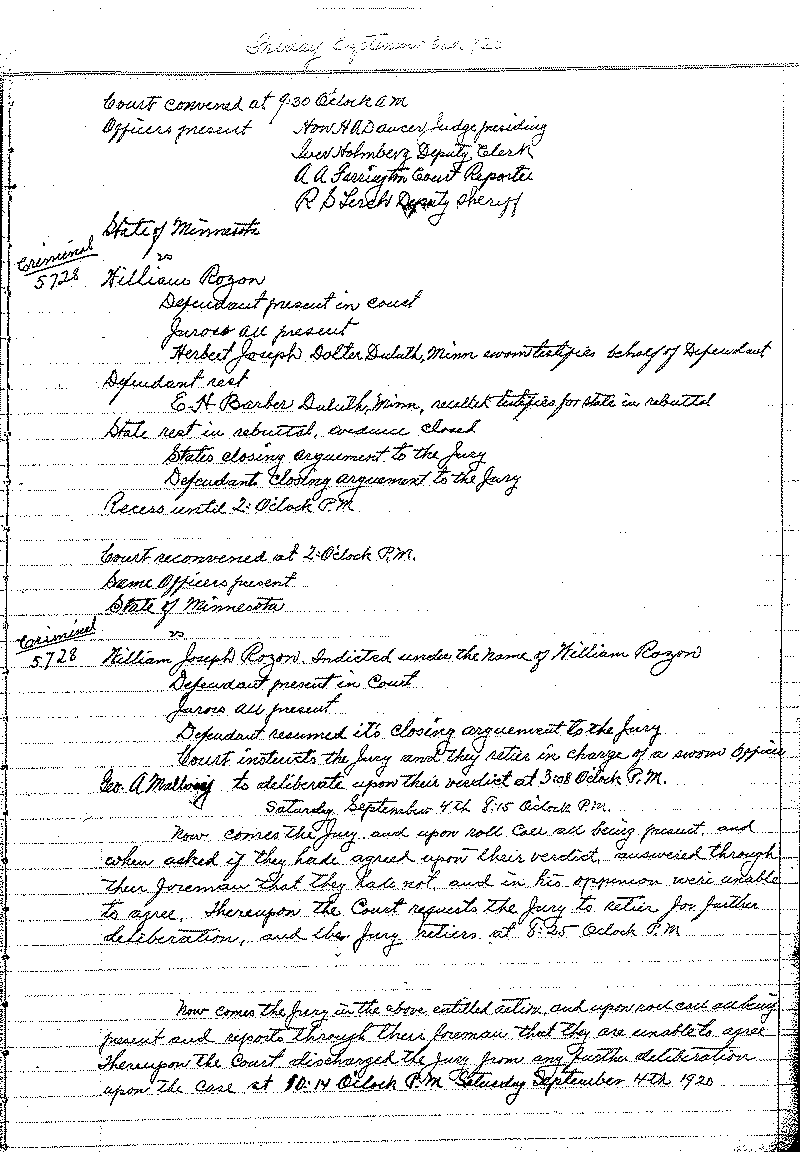 Friday September 3rd 1920
Court convened at 9:30 O'clock A.M.
Officers present Hon H A Dancer, Judge presiding
Iver Holmberg Deputy Clerk
A A Farrington Court Reporter
R S Lerch Deputy Sheriff
State of Minnesota
Criminal vs
5728 William Rozon
Defendant present in court
Jurors all present
Herbert Joseph Dolter Duluth, Minn sworn testifies behalf of Defendant
Defendant rest
E H Barber Duluth, Minn, recalled testifies for state in rebuttal
State rest in rebuttal, evidence closed
States closing arguement to the Jury
Defendants closing arguement to the Jury
Recess until 2: O'clock P.M
Court reconvened at 2: O'clock P.M.
Same Officers present
State of Minnesota
Criminal vs
5728 William Joseph Rozon. Indicted under the name of William Rozon
Defendant present in Court
Jurors all present
Defendant resumed it's closing arguement to the Jury
Court instructs the Jury and they retier in charge of a sworn Officer
Geo. A to deliberate upon their verdict at 3:08 O'clock P.M.
Saturday September 4th 8:15 O'clock P.M.
Now comes the Jury and upon roll call all being present, and
when asked if they hade agreed upon their verdict, answered through
their foreman that they had not, and in his oppinion were unable
to agree. Thereupon the Court requests the Jury to retier for further
deliberation, and the Jury retiers at 8:25 O'clock P.M
Now comes the Jury in the above entitled action, and upon roll call all being
present and reports through their foreman that they are unable to agree
Thereupon the Court discharged the Jury from any further deliberation
upon the case at 10:14 O'clock P.M Saturday September 4th 1920